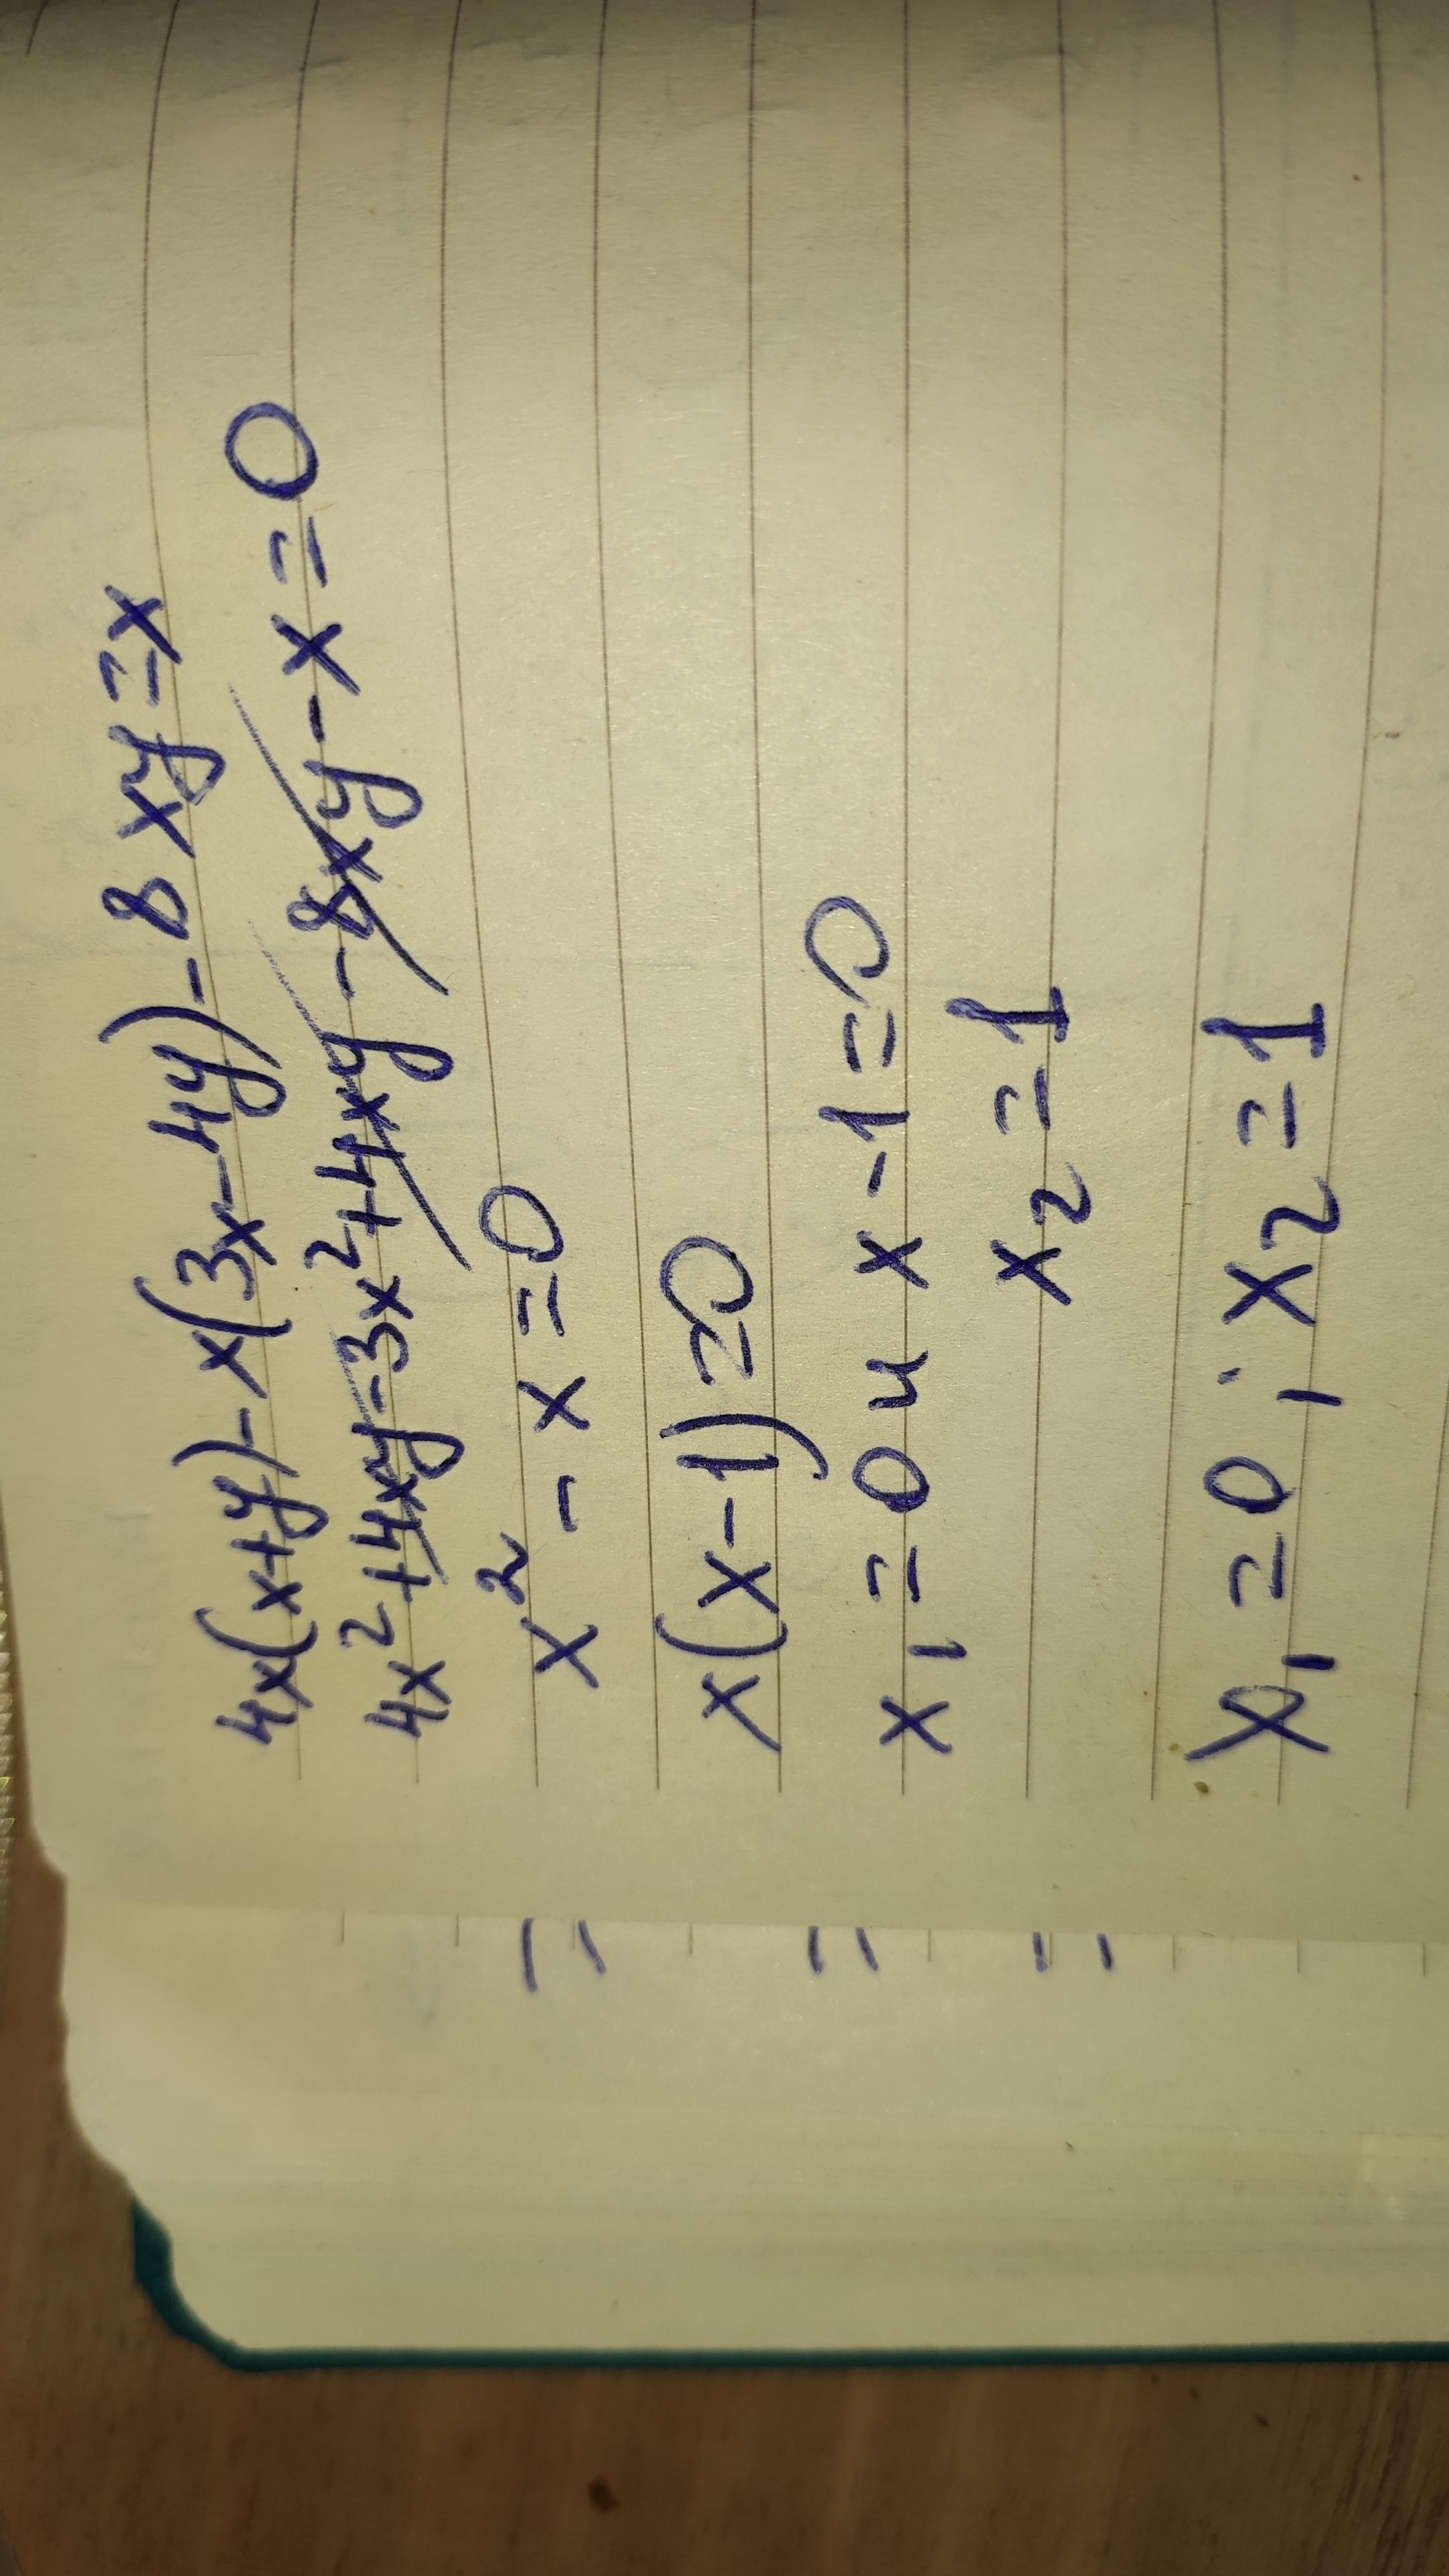 4x(x+y)-x(3x-4y)-8xy=x
4x²+4xy-3x²+4xy-8xy-x=0
x²-x=0
x(x-1)=0
x₁=0 и x-1=0
x₂=1
x₁=0; x₂=1